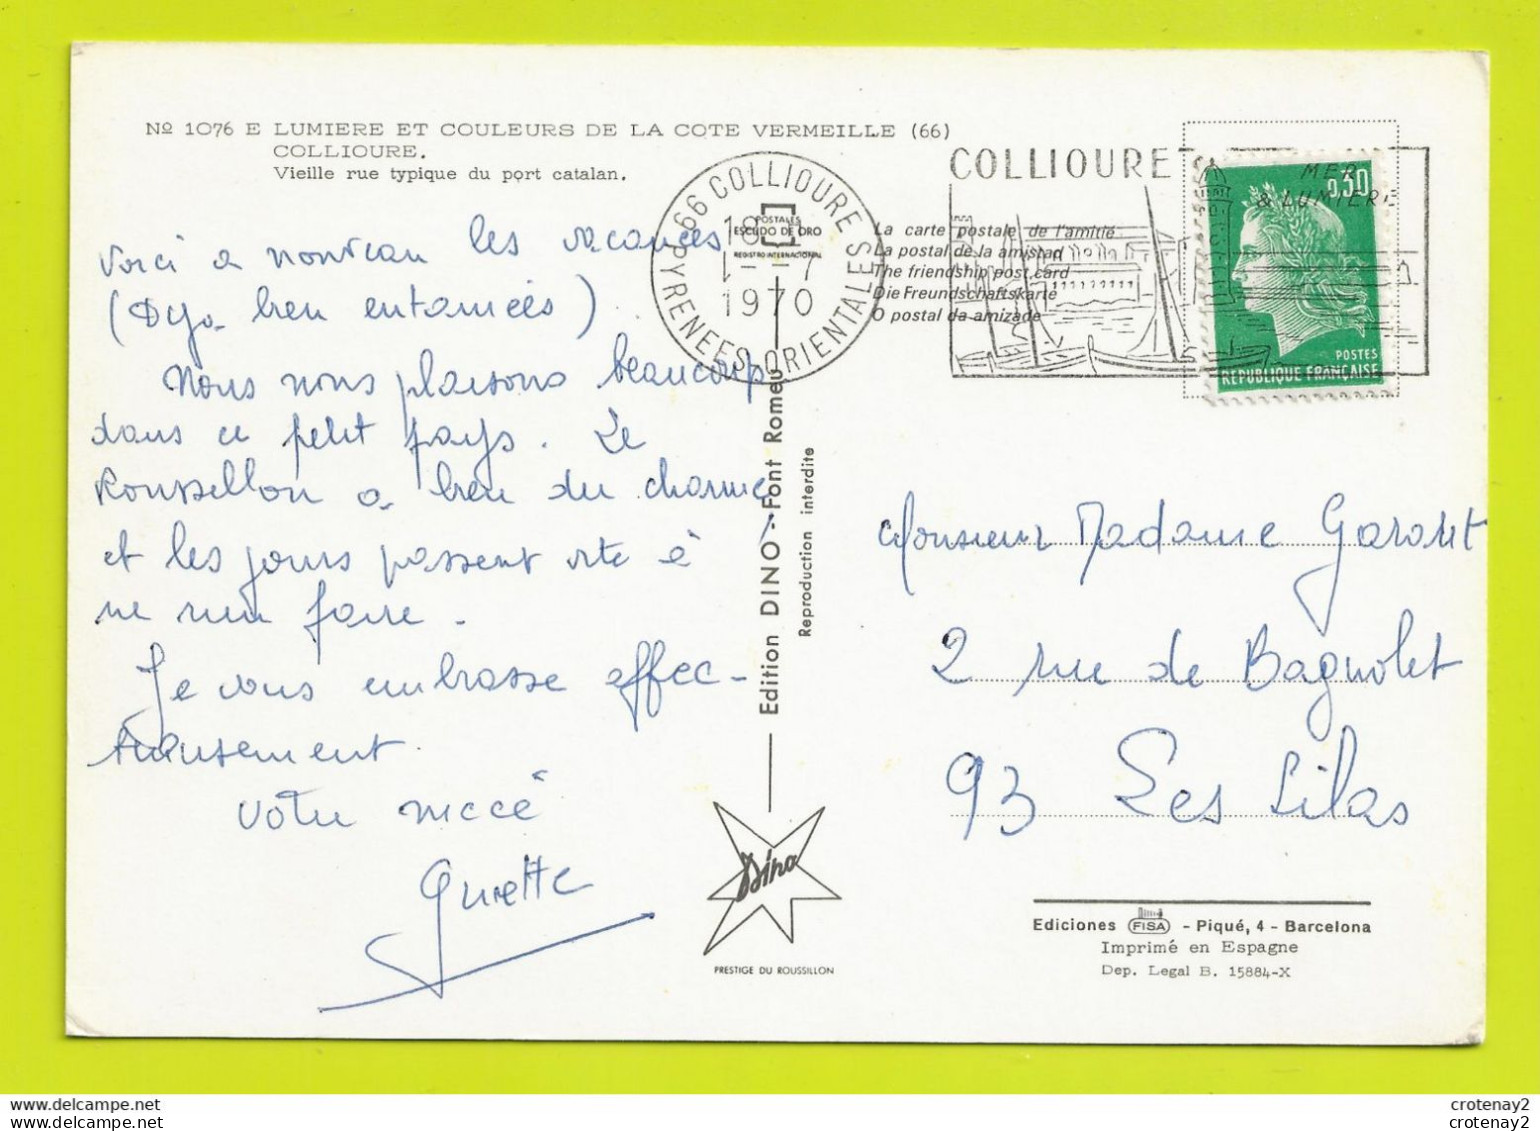 Nº 1076 E LUMIERE ET COULEURS DE LA COTE VERMEILLE (66)
COLLIOURE.
Vieille rue typique du port catalan.
Voici a nouveau les vacances
(Déja bien entamées).
Nous nous plaisons beaucoup
dans ce petit pays. Le
Roussillon a bien du charme
et les jours passent vite à
ne rien faire.
Je vous embrasse affec-
tueusement
Votre niece
66 COLLIOURE
PYRENEES-ORIENTALES
18
1-7
1970
POSTALES
ESCUDO DE ORO
REGISTRO INTERNACIONAL
Edition DINO - Font Romeu
Reproduction interdite
Dino
PRESTIGE DU ROUSSILLON
COLLIOURE
MER
& LUMIERE
La carte postale de l'amitié
La postal de la amistad
The friendship post card
Die Freundschaftskarte
O postal da amizade
0,30
POSTES
REPUBLIQUE FRANÇAISE
Monsieur Madame
2 rue de Bagnolet
93 Les Lilas
Ediciones FISA - Piqué, 4 - Barcelona
Imprimé en Espagne
Dep. Legal B. 15884-X
crotenay2
crotenay2